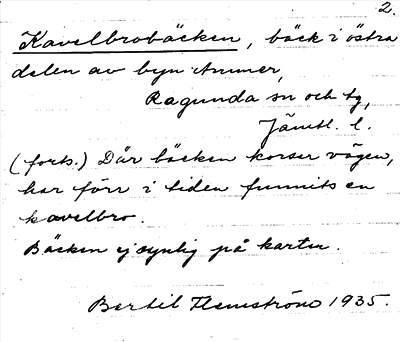 2.
Kavelbrobäcken, bäck i östra
delen av byn Ammer,
Ragunda sn och tg,
Jämtl. l.
(forts.) Där bäcken korsar vägen,
har förr i tiden funnits en
kavelbro.
Bäcken ej synlig på kartan.
Bertil Flemström 1935.